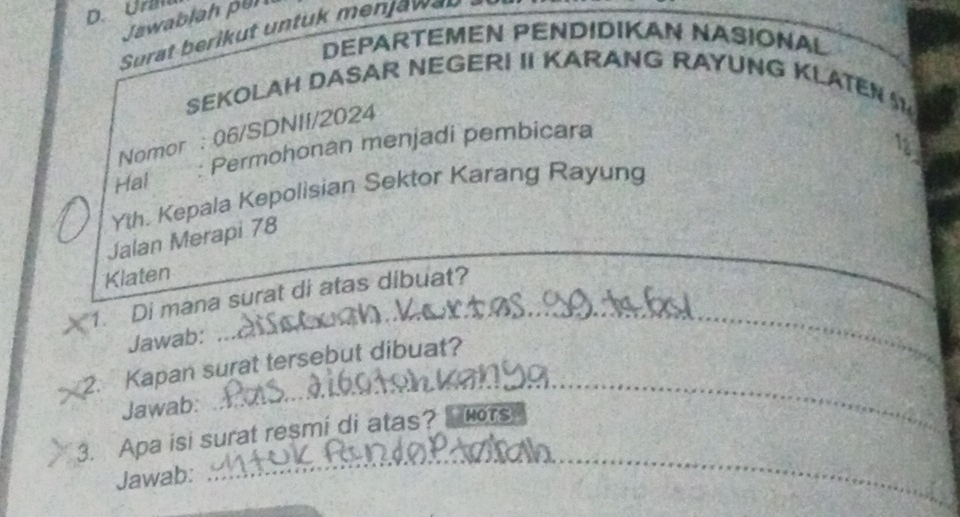 D.
Jawablah
Surat berikut untuk menjawab
DEPARTEMEN PENDIDIKAN NASIONAL
SEKOLAH DASAR NEGERI II KARANG RAYUNG KLATEN
Nomor : 06/SDNII/2024
Hal : Permohonan menjadi pembicara
Yth. Kepala Kepolisian Sektor Karang Rayung
Jalan Merapi 78
Klaten
1. Di mana surat di atas dibuat?
Jawab: disebuah kartas yg tebal
2. Kapan surat tersebut dibuat?
Jawab: Pas dibutuhkannya
3. Apa isi surat resmi di atas? HOTS
Jawab: untuk